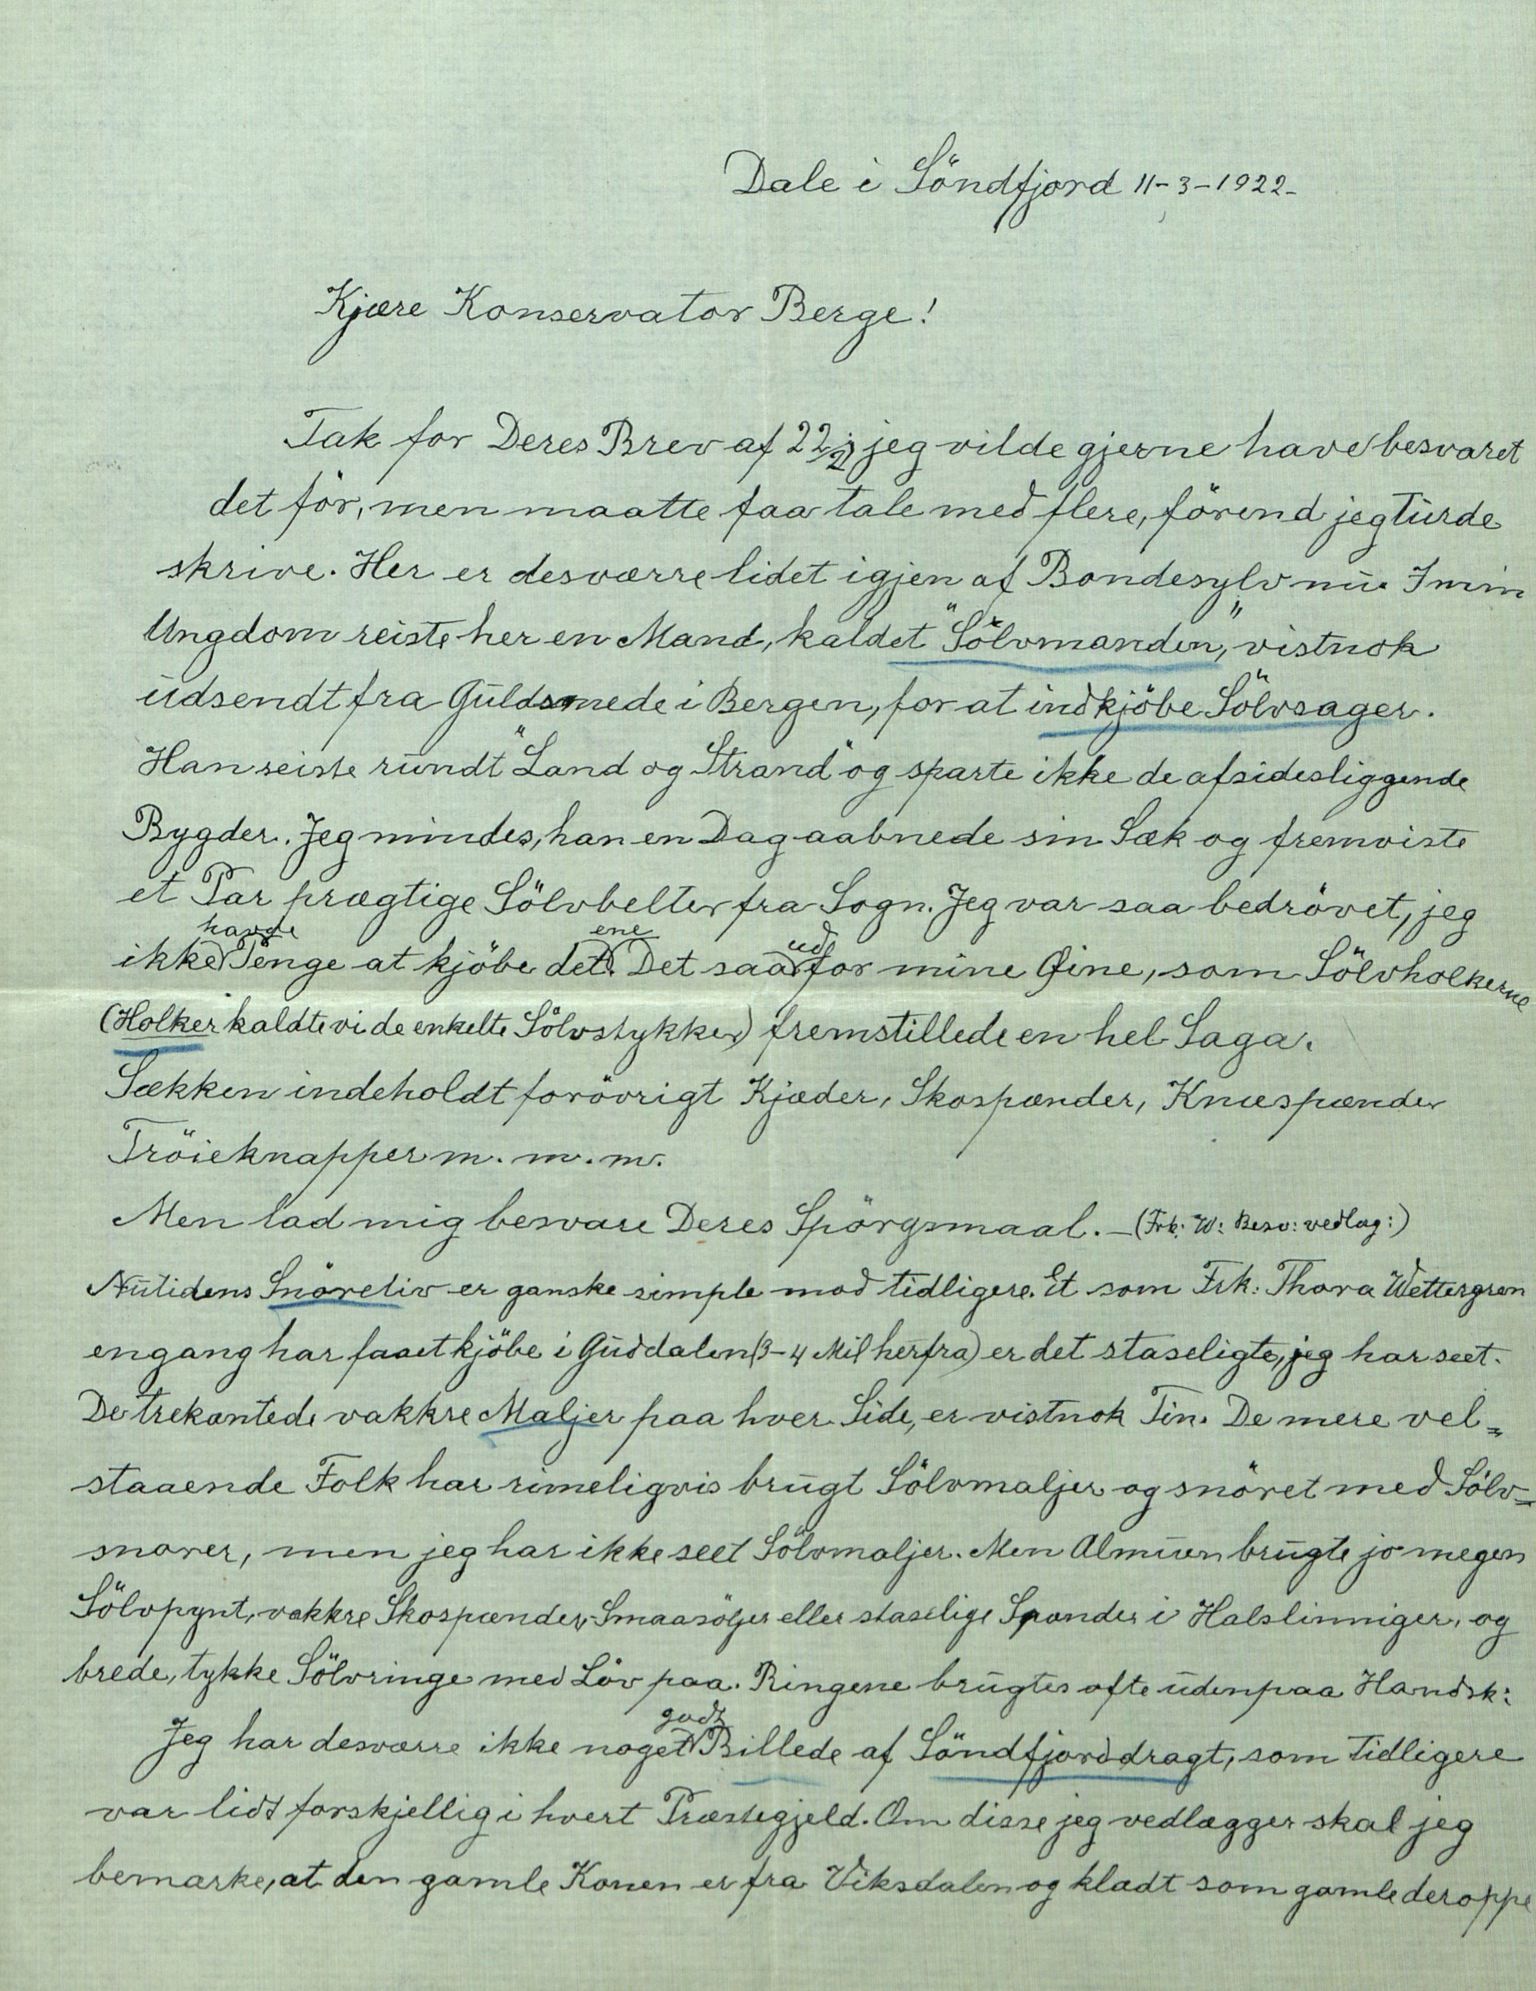 Dale i Söndfjord 11-3-1922-
Kjære Konservator Berge!
Tak for Deres Brev af 22/2; jeg vilde gjerne have besvaret
det för, men maatte faa tale med flere, förend jeg turde
skrive. Her er desværre lidet igjen af Bondesylv nu. I min
Ungdom reiste her en Mand, kaldet "Sölvmanden", vistnok
udsendt fra Guldsmede i Bergen, for at indkjöbe Sölvsager.
Han reiste rundt "Land og Strand" og sparte ikke de afsidesliggende
Bygder. Jeg mindes, han en Dag aabnede sin Sæk og fremviste
et Par prægtige Sölvbelter fra Sogn. Jeg var saa bedrövet, jeg
ikke havde Penge at kjöbe det ene. Det saa ud for mine Øine, som Sölvholkerne
(Holker kaldte vi de enkelte Sölvstykker) fremstillede en hel Saga.
Sækken indeholdt forövrigt Kjæder, Skospænder, Knæspænder
Tröieknapper m. m. m.
Men lad mig besvare Deres Spörgsmaal. - (Frk: W: Besv: vedlag:)
Nutidens Snöreliv er ganske simple mod tidligere. Et som Frk: Thora Wettergren
engang har faaet kjöbe i Guddalen (3-4 Mil herfra) er det staseligte, jeg har seet.
De trekantede vakkre Maljer paa hver Side, er vistnok Tin. De mere vel=
staaende Folk har rimeligvis brugt Sölvmaljer og snöret med Sölv=
snorer, men jeg har ikke seet Sölvmaljer. Men Almuen brugte jo megen
Sölvpynt, vakkre Skospænder, Smaasöljer eller staselige Spænder i Halslinniger, og
brede, tykke Sölvringe med Löv paa. Ringene brugtes ofte udenpaa Handsk:
Jeg har desværre ikke noget godt Billede af Söndfjorddragt, som tidligere
var lidt forskjellig i hvert Præstegjeld. Om disse jeg vedlægger skal jeg
bemærke, at den gamle Konen er fra Viksdalen og klædt som gamle deroppe